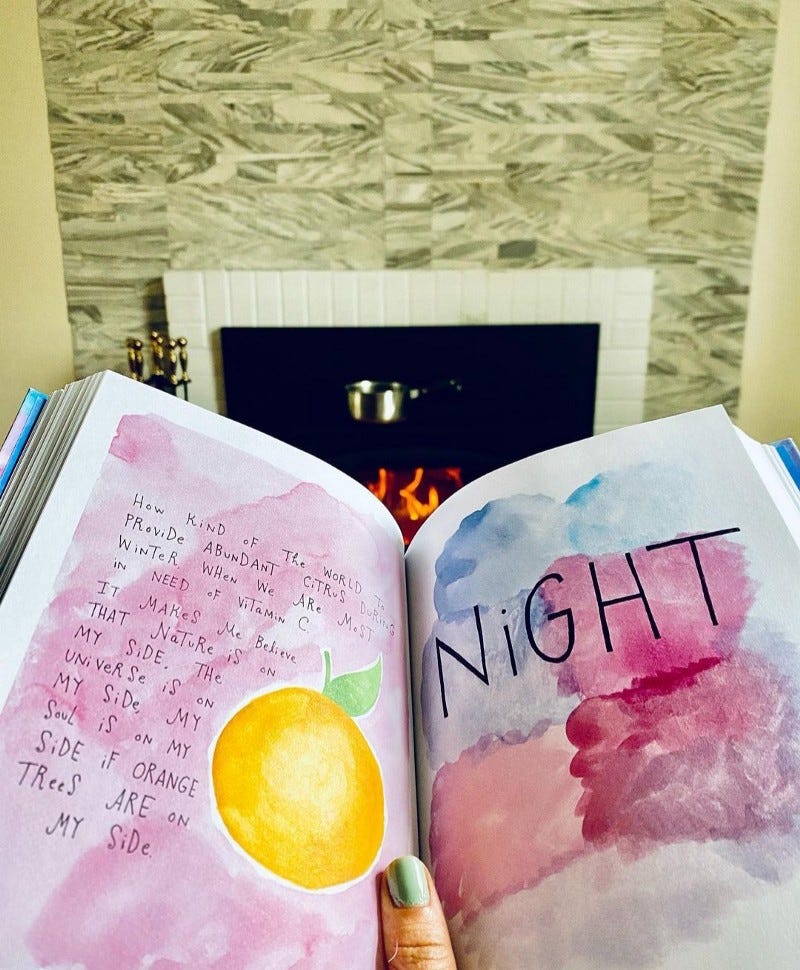 HOW KIND OF THE WORLD TO
PROVIDE ABUNDANT CITRUS DURING
WINTER WHEN WE ARE MOST
IN NEED OF VITAMIN C.
IT MAKES ME BELIEVE
THAT NATURE IS ON
MY SIDE. THE
UNIVERSE IS ON
MY SIDE, MY
SOUL IS ON MY
SIDE IF ORANGE
TREES ARE ON
MY SIDE.
NIGHT